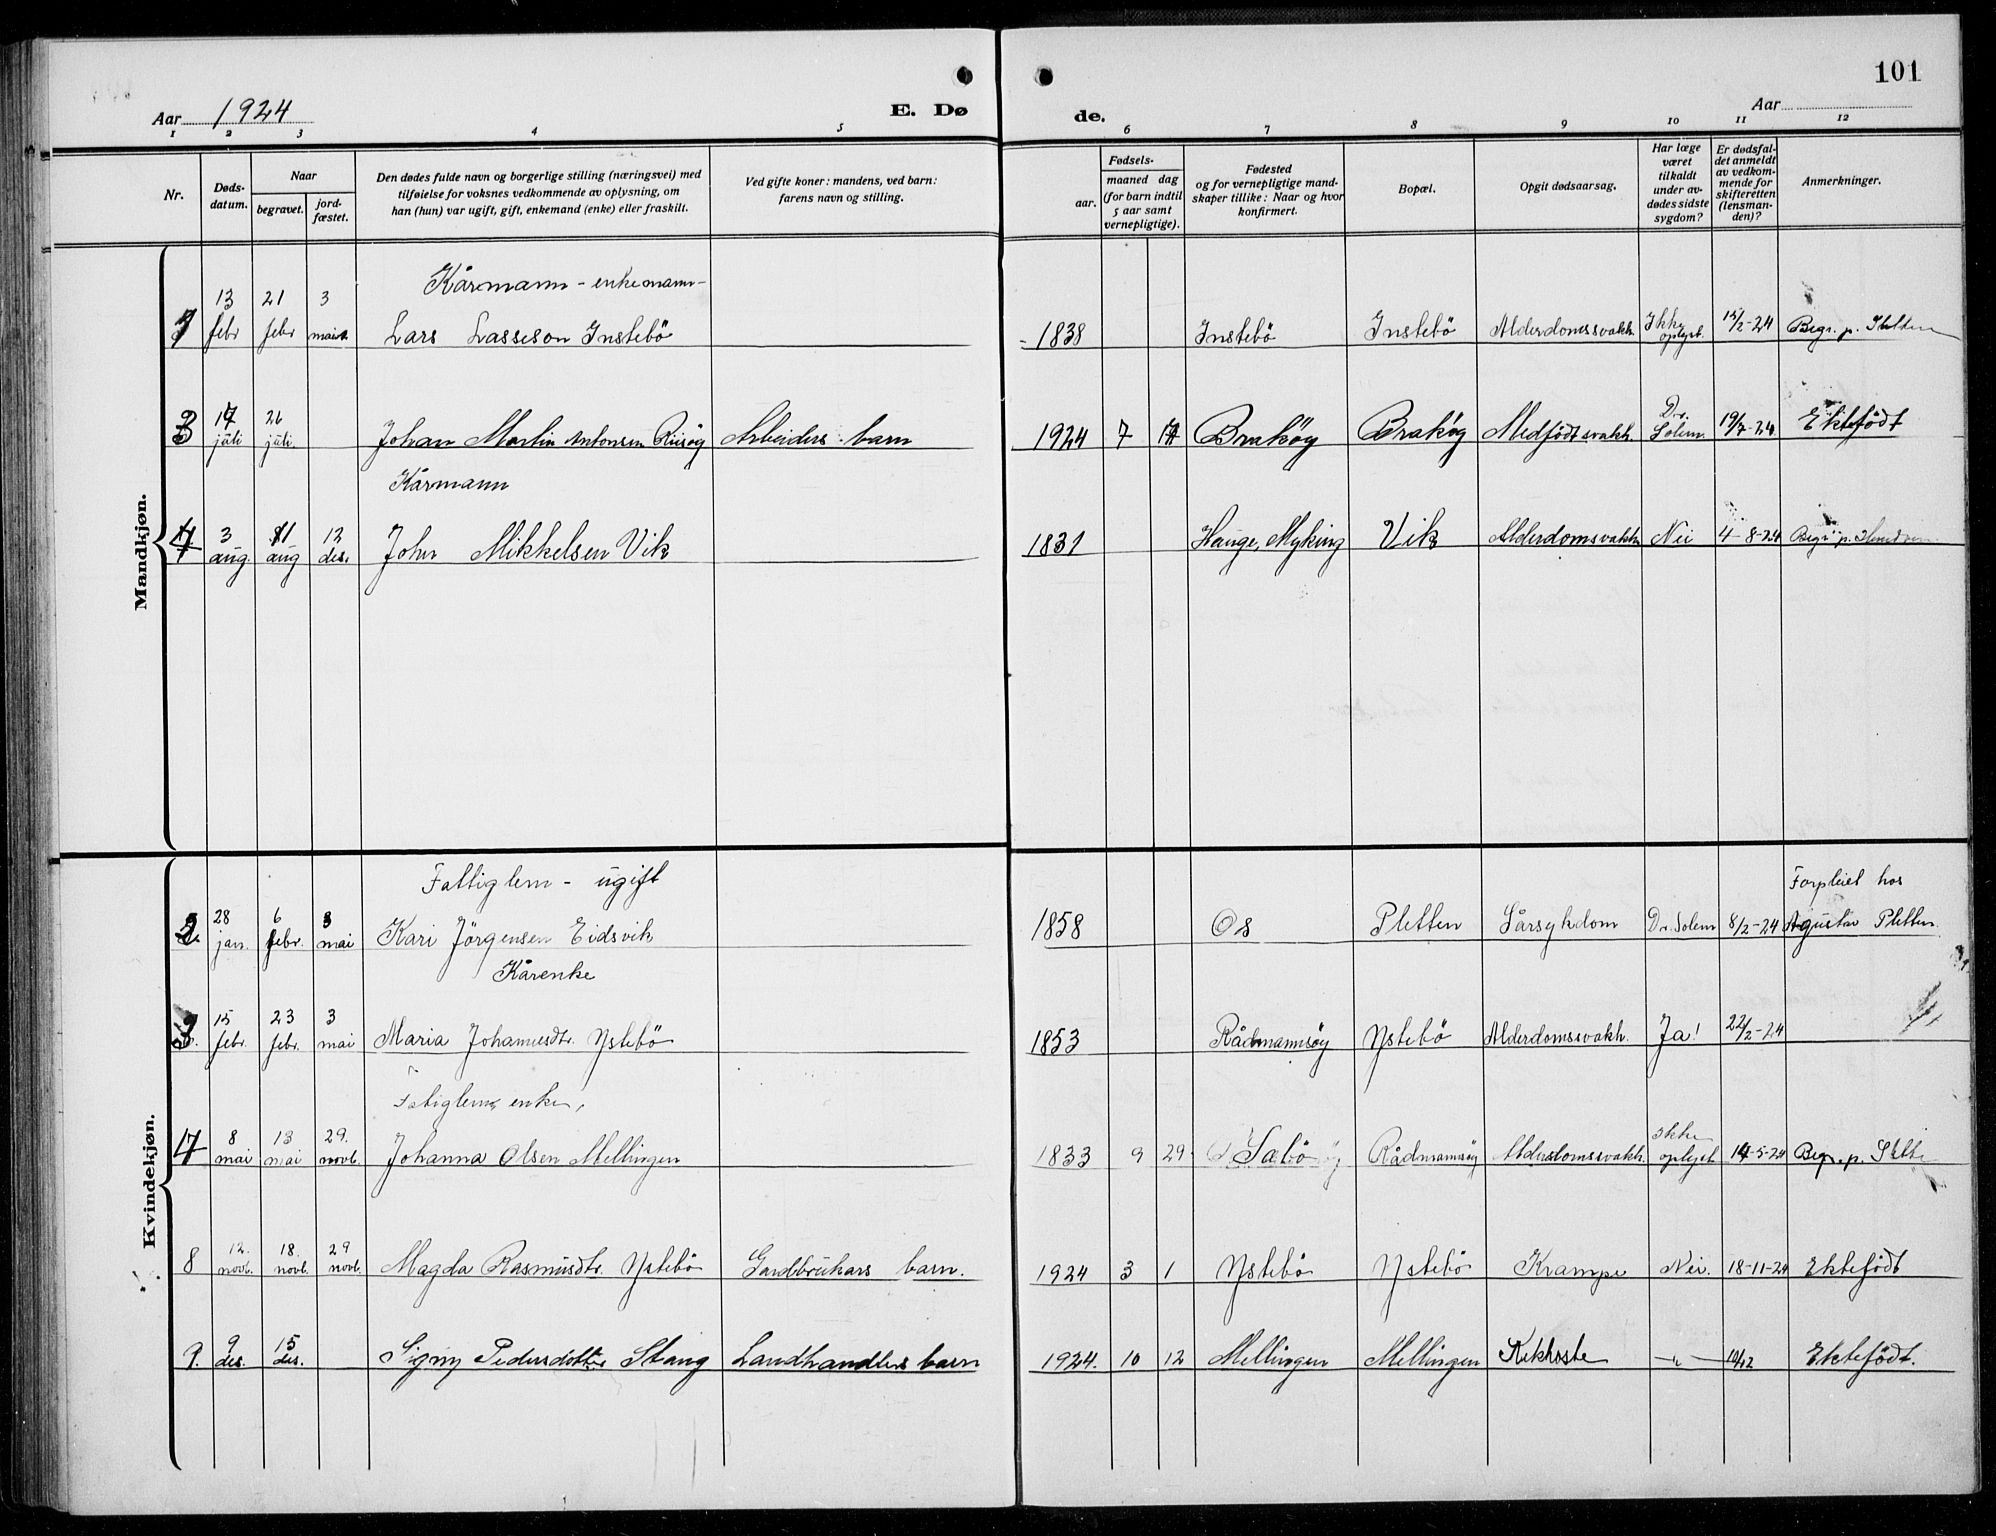 101
Aar 1924
E. Dø
de.
Aar
1 2 3 4 5
6 7 8 9 10 11 12
Nr.
Døds-
datum.
Naar
begravet.
jord-
fæstet.
Den dødes fulde navn og borgerlige stilling (næringsvei) med
tilføielse for voksnes vedkommende av oplysning, om
han (hun) var ugift, gift, enkemand (enke) eller fraskilt.
Ved gifte koner: mandens, ved barn:
farens navn og stilling.
Fødsels-
aar.
maaned dag
(for barn indtil
5 aar samt
vernepligtige).
Fødested
og for vernepligtige mand-
skaper tillike: Naar og hvor
konfirmert.
Bopæl.
Opgit dødsaarsag.
Har læge
været
tilkaldt
under av-
dødes sidste
sygdom?
Er dødsfal-
det anmeldt
av vedkom-
mende for
skifteretten
(lensman-
den)?
Anmerkninger.
Mandkjøn.
Kårmann - enkemann-
13 febr 21 febr 3 mai Lars Lasseson Instebö 1838 Instebö Instebö Alderdomssvakh. Ikke oplyst. 15/2-24 Begr. p.
juli 26 juli. Johan Martin Antonsen Risöy Arbeiders barn 1924 7 Brakøy Brakøy Medfödt svakh. Dr. Solem. 19/7-24 Ektefödt
Kårmann
3 aug. 11 aug 12 des. John Mikkelsen Vik 1831 Hauge, Myking Vik Alderdomsvakh Nei 4-8-24 Begr. p.
Kvindekjøn.
Fattiglem - ugift
Forpleiet hos
2. 28 jan. 6 febr. 3 mai Kari Jörgensen Eidsvik 1858 Os Pletten Sårsykdom Dr. Solem 8/2-24 Agustav Pletten
Kårenke
3. 15 febr. 23 febr. 3 mai Maria Johannesdtr. Ystebö 1853 Rådmannsöy Ystebö Alderdomssvakh. Ja! 22/2-24
Fatiglem, enke,
8 mai 13 mai 29. novb. Johanna Olsen Mellingen 1833 9 29 Sæbö Rådmannsöy Alderdomssvakh. Ikke oplyst 14-5-24 Begr. p.
8 12. novb. 18. novb. 29 novb. Magda Rasmusdtr. Ystebö Gardbrukars barn. 1924 3 1 Ystebö Ystebö Krampe Nei. 18-11-24 Ektefödt
9. 9 des. 15 des. Signy Pedersdotter Stang Landhandlers barn 1924. 10 12 Mellingen Mellingen Kikhoste -"- 10/12 Ektefödt.